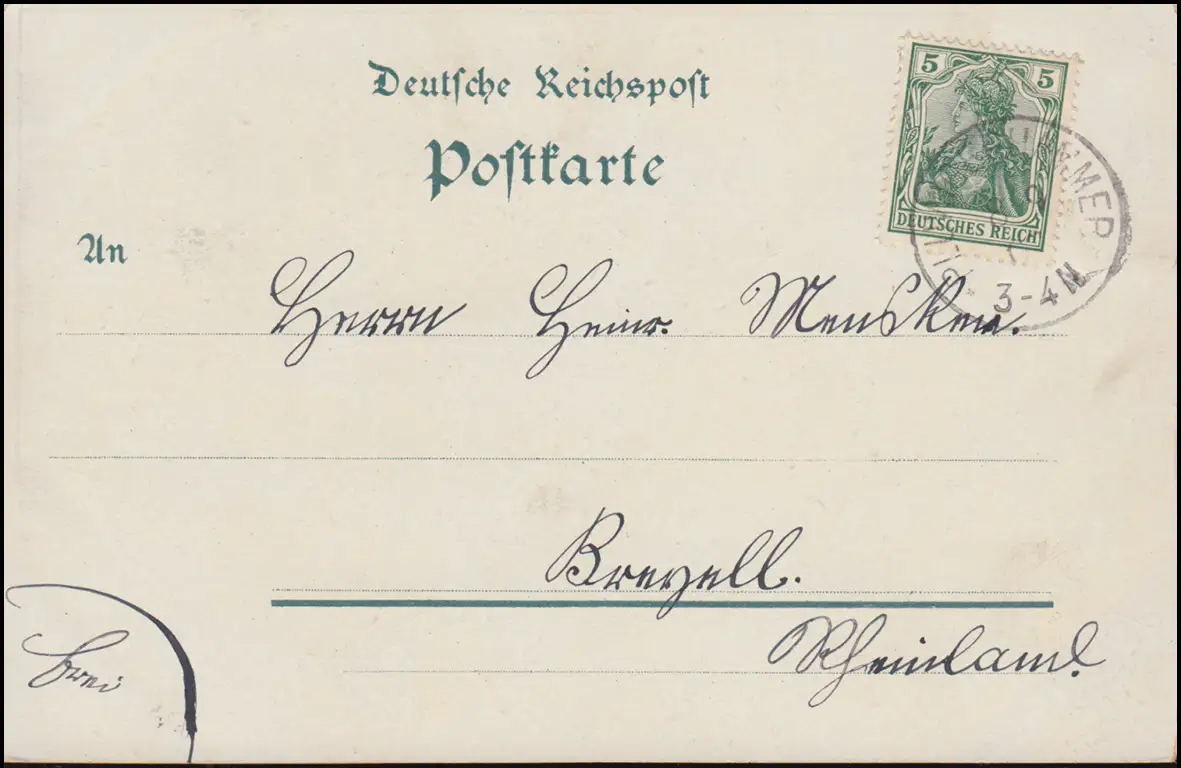 Deutsche Reichspost
Postkarte
5 5
DEUTSCHES REICH
3-4 N
An
Herrn Heinr. Mensken.
Kreyell.
Rheinland.
frei